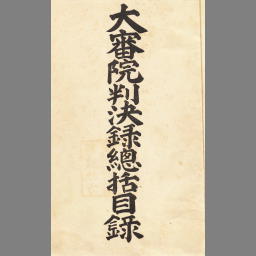 大審院判決録總括目録